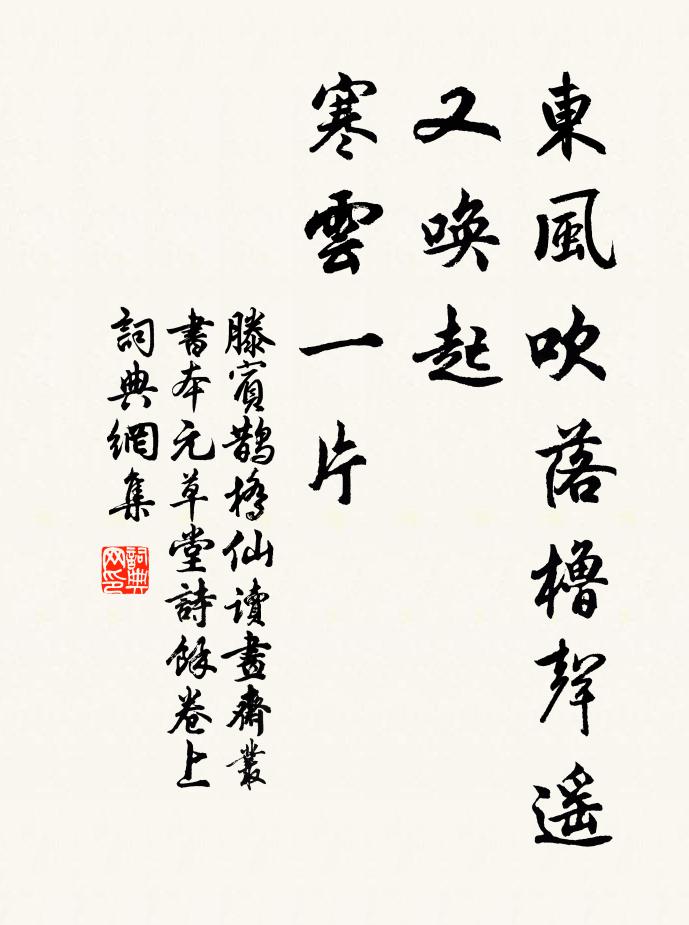 東風吹落櫓聲遥
又唤起
寒雲一片
滕賓鵲橋仙讀畫齋叢
書本元草堂詩餘卷上
詞典網集
詞典网印